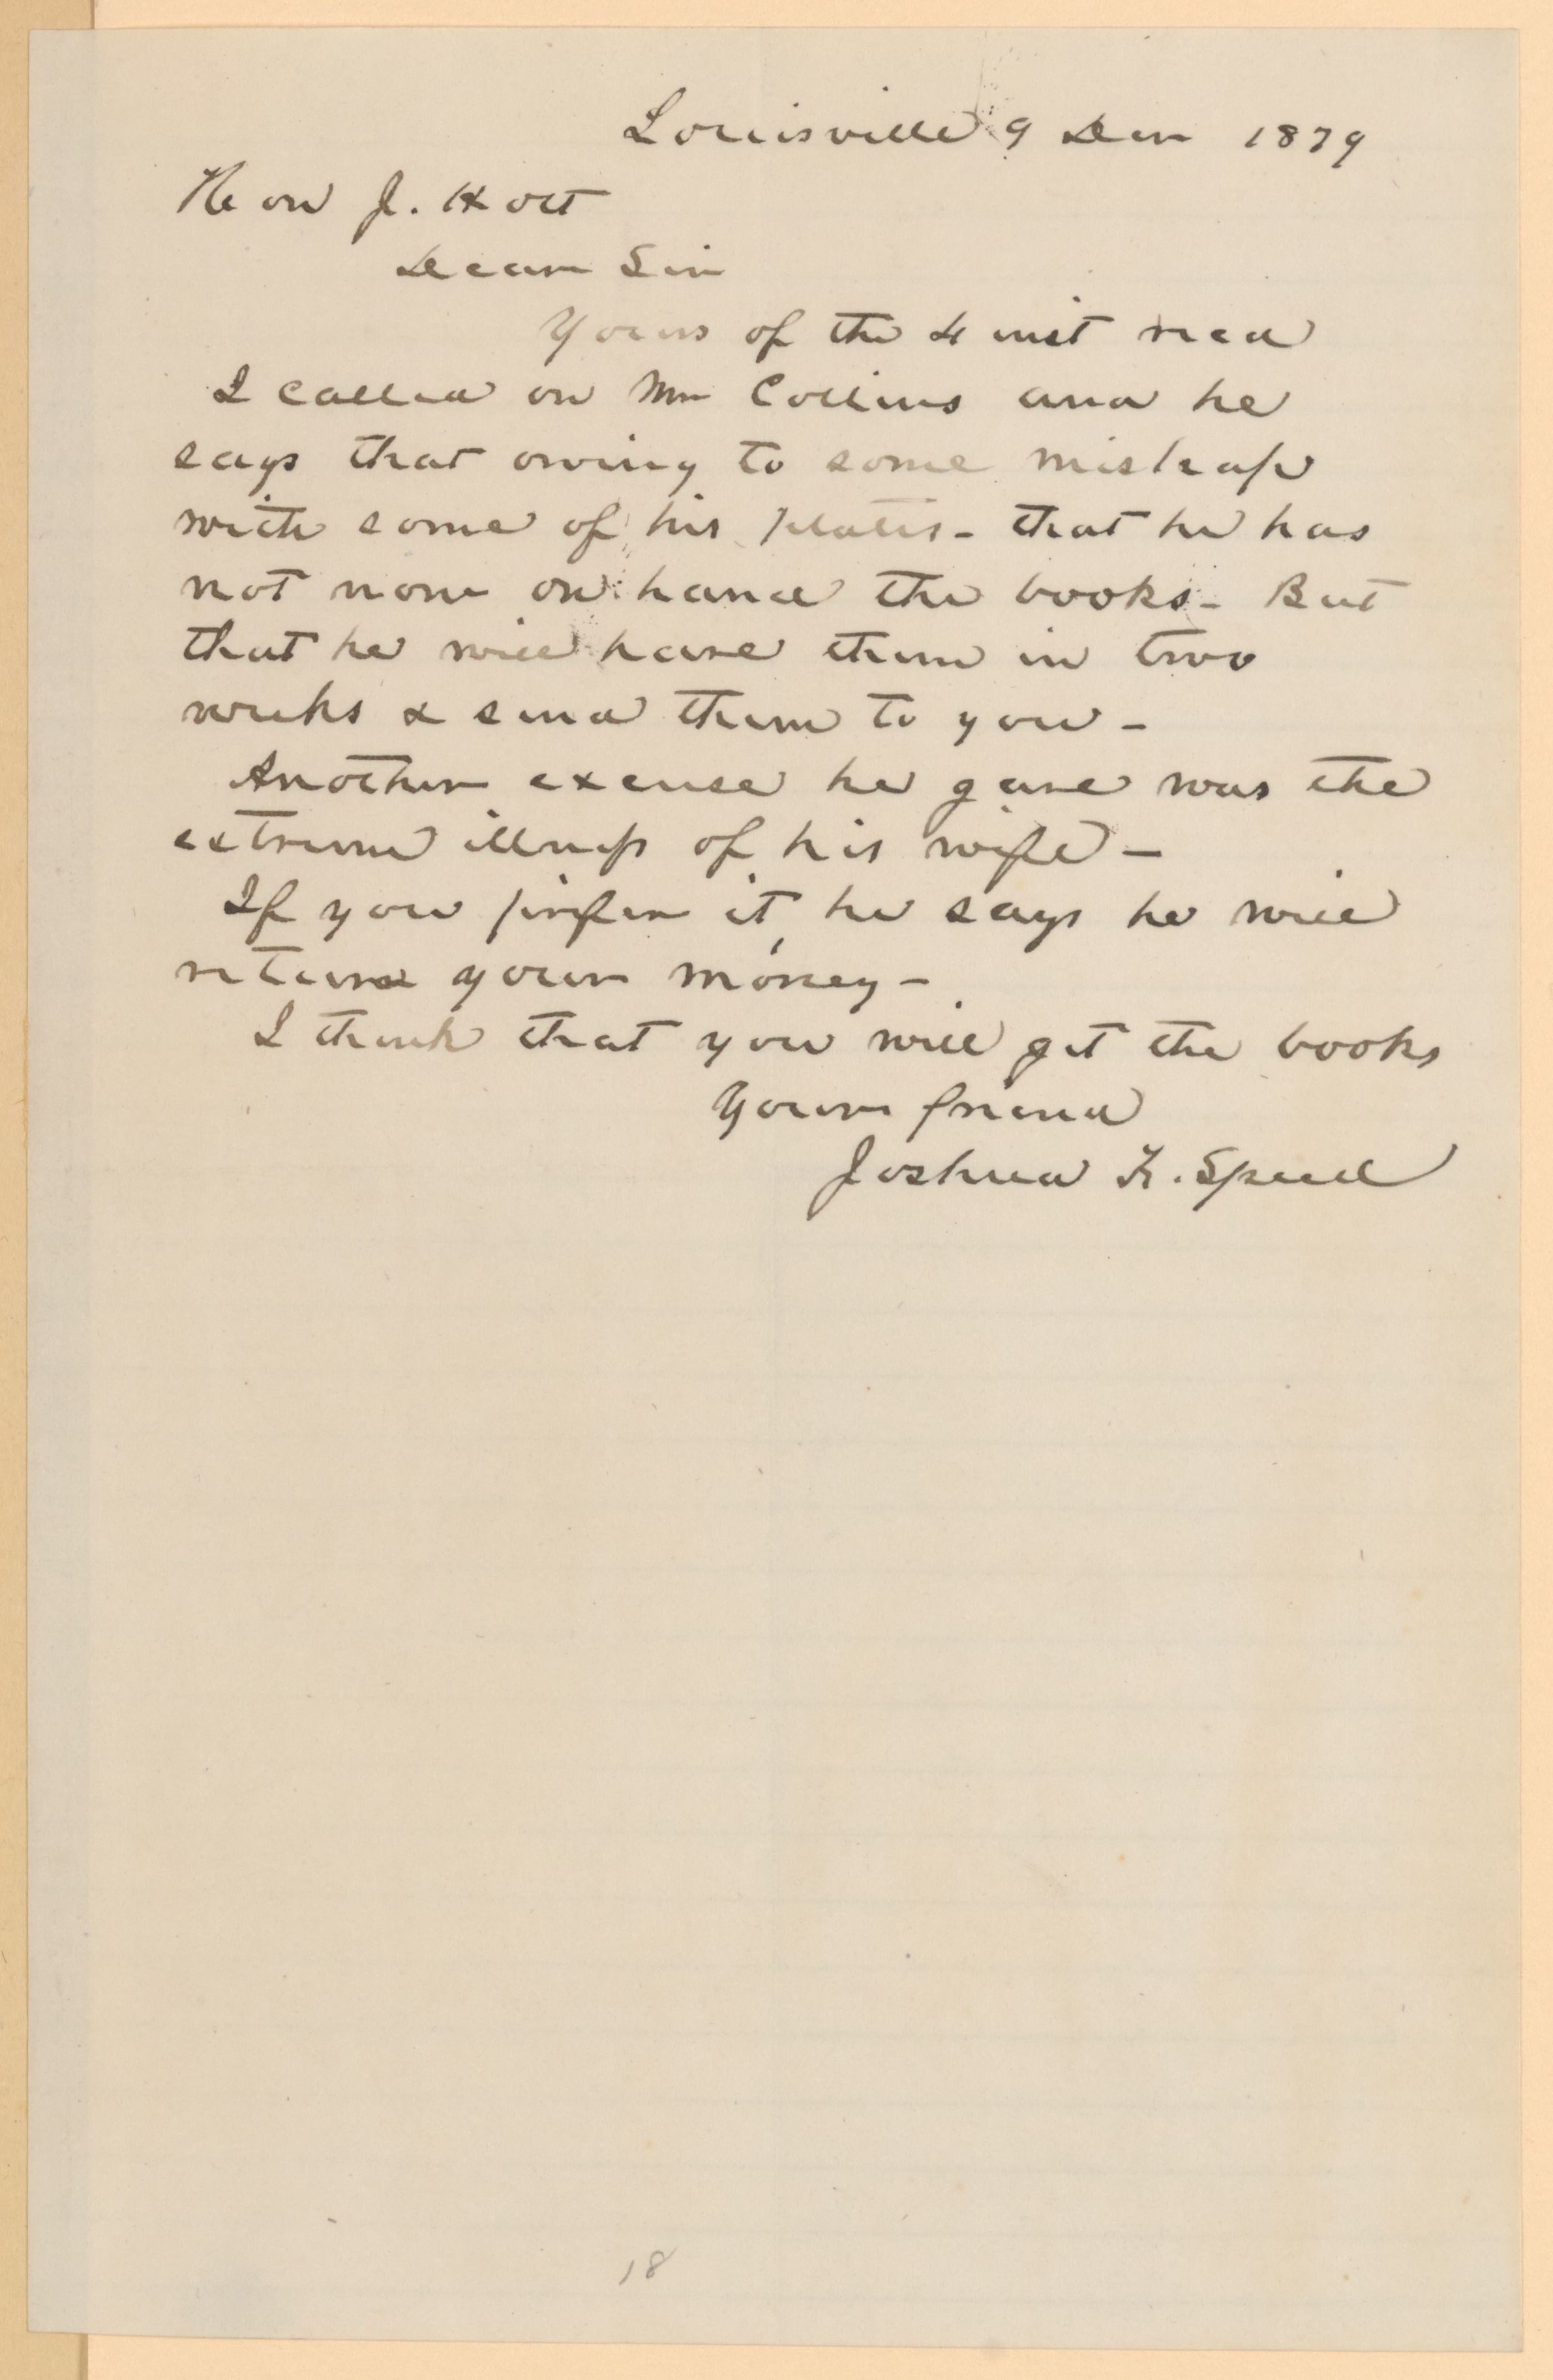 Louisville 9 Dec 1879
Hon J. Holt
Dear Sir
Yours of the 4 inst recd
I called on Mr Collins and he
says that owing to some mishap
with some of his plates - that he has
not now on hand the books - But
that he will have them in two
weeks & send them to you -
Another excuse he gave was the
extreme illness of his wife -
If you prefer it, he says he will
return your money -
I think that you will get the books
Your friend
Joshua F. Speed
18